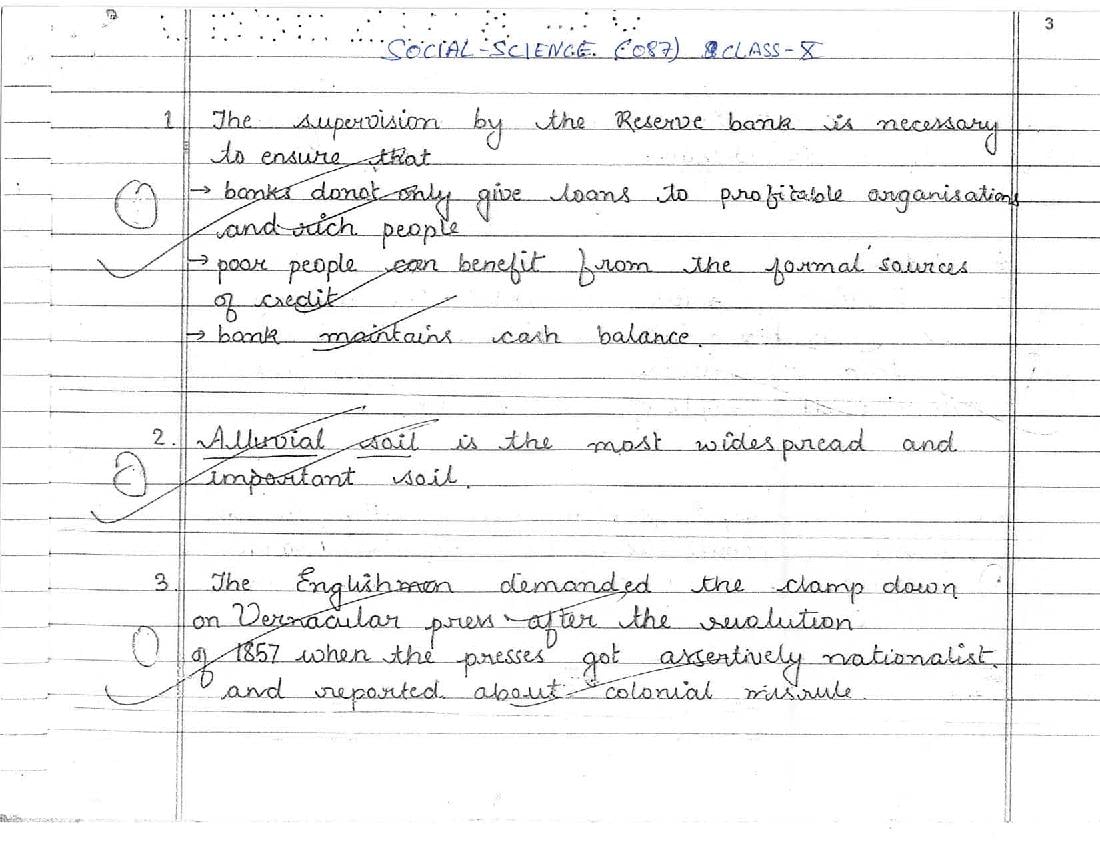 3
SOCIAL-SCIENCE. (087) CLASS-X
1 The supervision by the Reserve bank is necessary
to ensure that
→ banks donot only give loans to profitable organisations
and rich people
→ poor people can benefit from the formal sources
of credit
→ bank maintains cash balance.
2. Alluvial soil is the most widespread and
important soil.
3. The Englishmen demanded the clamp down
on Vernacular press after the revolution
of 1857 when the presses got assertively nationalist.
and reported about colonial misrule.